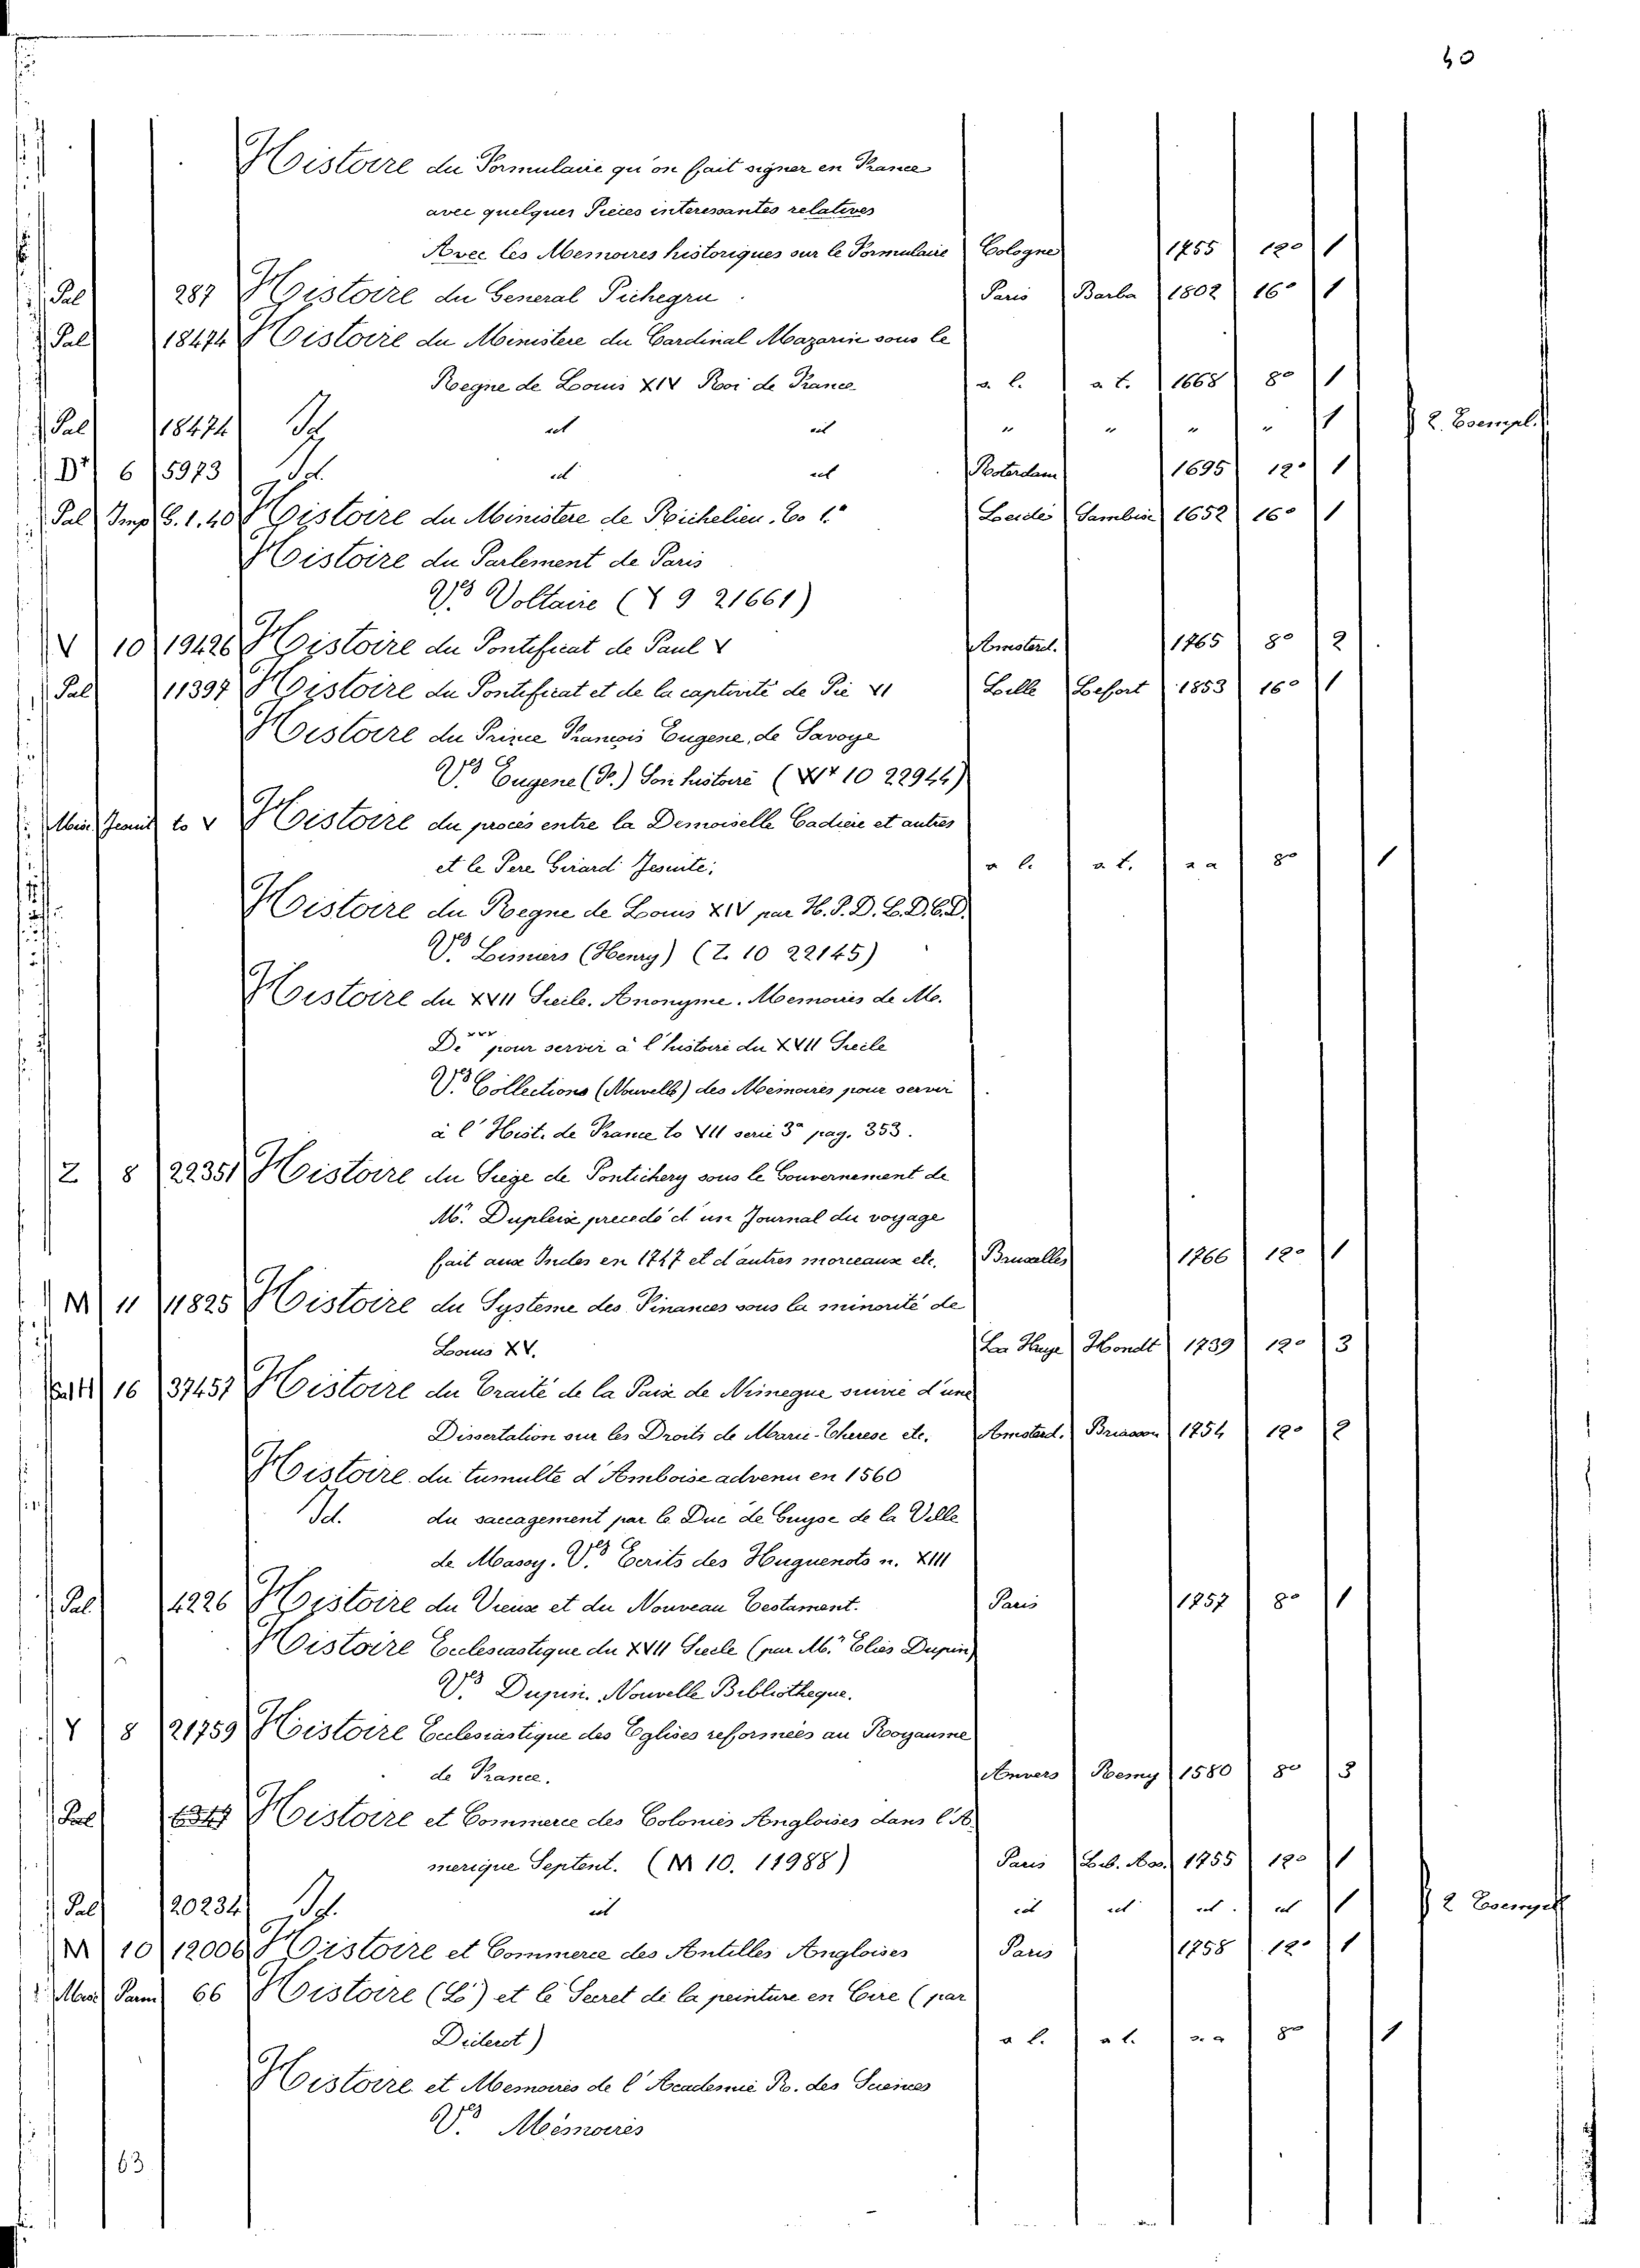 40
Histoire du Formulaire qu'on fait signer en France
avec quelques Pieces interessantes relatives
Avec les Memoires historiques sur le Formulaire Cologne 1755 12° 1
Pal 287 Histoire du General Pichegru. Paris Barba 1802 16° 1
Pal 18474 Histoire du Ministere du Cardinal Mazarin sous le
Regne de Louis XIV Roi de France s. l. a. t. 1668 8° 1
Pal 18474 Id. id id " " " " 1 2. Esempl.
D 6 5973 Id. id id Roterdam 1695 12° 1
Pal Imp B. 1. 40 Histoire du Ministere de Richelieu. To 1° Leide Sambix 1652 16° 1
Histoire du Parlement de Paris
V. Voltaire (Y 9 21661)
V 10 19426 Histoire du Pontificat de Paul V Amsterd. 1765 8° 2
Pal 11397 Histoire du Pontificat et de la captivité de Pie VI Lille Lefort 1853 16° 1
Histoire du Prince François Eugene, de Savoye
V. Eugene (P.) Son histoire ( 10 22944)
Misc. to V Histoire du procès entre la Demoiselle Cadiere et autres
et le Pere Girard Jesuite; a l. a t. a a 8° 1
Histoire du Regne de Louis XIV par H. P. D. L. D. E. D.
V. Limiers (Henry) (Z. 10 22145)
Histoire du XVII Siecle. Anonyme. Memoires de M.
De pour servir à l'histoire du XVII Siecle
V. Collections (Nouvelle) des Mémoires pour servir
à l'Hist. de France to VII serie 3ª pag. 353.
Z 8 22351 Histoire du Siege de Pontichery sous le Gouvernement de
M.r Dupleix precedé d'un Journal du voyage
fait aux Indes en 1747 et d'autres morceaux etc. Bruxelles 1766 12° 1
M 11 11825 Histoire du Systeme des Finances sous la minorité de
Louis XV. La Haye Hondt 1739 12° 3
16 37457 Histoire du Traité de la Paix de Nimegue suivie d'une
Dissertation sur les Droits de Marie-Therese etc. Amsterd. Briasson 1754 12° 2
Histoire du tumulte d'Amboise advenu en 1560
Id. du saccagement par le Duc de Guyse de la Ville
de Massy. V. Ecrits des Huguenots n. XIII
Pal 4226 Histoire du Vieux et du Nouveau Testament. Paris 1757 8° 1
Histoire Ecclesiastique du XVII Siecle (par M.r Elies Dupin)
V. Dupin. Nouvelle Bibliotheque.
Y 8 21759 Histoire Ecclesiastique des Eglises reformées au Royaume
de France. Anvers Remy 1580 8° 3
Pal Histoire et Commerce des Colonies Angloises dans l'A-
merique Septent. (M 10. 11988) Paris 1755 12° 1
Pal 20234 Id. id id id id id 1 2 Esempl
M 10 12006 Histoire et Commerce des Antilles Angloises Paris 1758 12° 1
Misc Parm 66 Histoire (L') et le Secret de la peinture en Cire (par
Diderot) a l. a t. a a 8° 1
Histoire et Memoires de l'Academie R. des Sciences
V. Mémoires
63